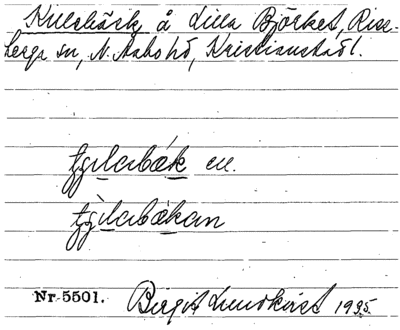 Killebäck å Lilla Björket, Riss-
berga sn, N. Åsbo hd, Kristianstads l.
tjilabäk en.
tjìlabäkan
Nr 5501. Birgit Lundkvist 1935.